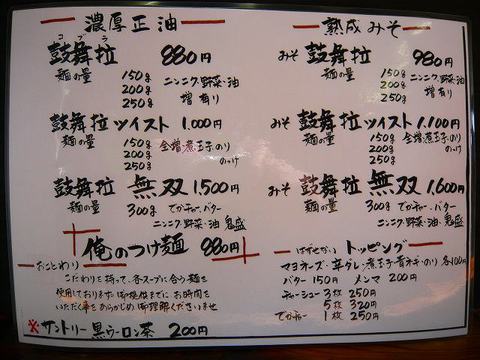 濃厚正油
コブラ
鼓舞拉 880円
麺の量 150g ニンニク・野菜・油
200g 増有り
250g
鼓舞拉ツイスト 1,000円
麺の量 150g 全増煮玉子・のり
200g のっけ
250g
鼓舞拉 無双 1,500円
麺の量 300g でかチャー、バター
ニンニク・野菜・油 鬼盛
俺のつけ麺 880円
おことわり
こだわりを持って、各スープに合う麺を
使用しております。御提供までにお時間を
いただく事をあらかじめ御理解くださいませ
※サントリー黒ウーロン茶 200円
熟成みそ
みそ 鼓舞拉 980円
麺の量 150g ニンニク・野菜・油
200g 増有り
250g
みそ 鼓舞拉ツイスト 1,100円
麺の量 150g 全増煮玉子・のり
200g のっけ
250g
みそ 鼓舞拉 無双 1,600円
麺の量 300g でかチャー、バター
ニンニク・野菜・油 鬼盛
はずせない トッピング
マヨネーズ・辛ダレ・煮玉子・青ネギ・のり 各100円
バター 150円 メンマ 200円
チャーシュー 3枚 250円
5枚 320円
でかチャー 1枚 250円